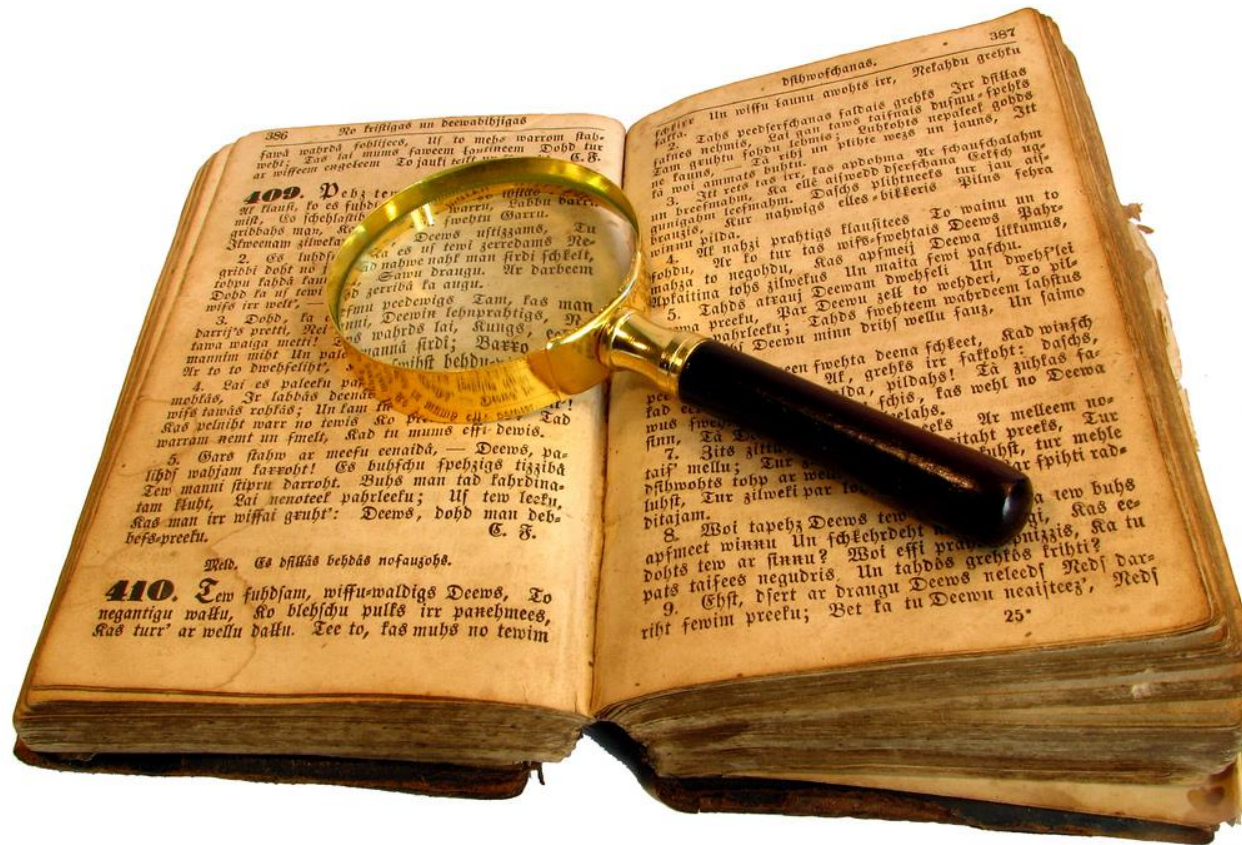 386 No kristigas un deewabihjigas
sawâ wahrdâ sohlijees, Us to mehs warrom stah-
weht; Tas lai mums saweem lautineem Dohd tur
ar wisseem engeleem To jauki teikt un C. F.
409. Pehz tew
Ak klausi, ko es suhds warru, Labbu darru
mihl, Es schehlastib swehtu Garru.
gribbahs man, Ko
Ikweenam zilweka
2. Es luhds Deews ustizzams, Tu
gribbi doht no es us tewi zerredams Ne-
tohpu kahdâ kaun nahwe nahk man sirdi schkelt,
Dohd ka us tewi Sawu draugu. Ar darbeem
wiss irr welt', zerribâ ka augu.
3. Dohd, ka peedewigs Tam, kas man
darrij's pretti, Nei Deewin lehnprahtigs, N
tawa waiga metti! wahrds lai, Kungs,
mannim miht Un pale mannâ sirdî; Barro
Ar to to dwehseliht, behdu-
4. Lai es paleeku pa
mohkâs, Ir labbâs deenas
wiss tawâs rohkâs; Un kam
Kas pelniht warr no tewis Ko Tad
warram nemt un smelt, Kad tu mums essi dewis.
5. Gars stahw ar meesu eenaidâ, — Deews, pa-
lihds wahjam karroht! Es buhschu spehzigs tizzibâ
Tew manni stipru darroht. Buhs man tad kahrdina-
tam kluht, Lai nenoteek pahrleeku; Us tew leeku,
Kas man irr wissai gruht': Deews, dohd man deb-
bess-preeku. C. F.
Meld. Es dsillâs behdâs nosauzohs.
410. Tew suhdsam, wissu-waldigs Deews, To
negantigu walku, Ko blehschu pulks irr panehmees,
Kas turr' ar wellu dallu. Tee to, kas muhs no tewim
dsihwoschanas. 387
schkirr Un wissu launu awohts irr, Nekahdu grehku
sakka.
2. Tahs peedserschanas saldais grehks Irr dsillas
saknes nehmis, Lai gan taws taisnais dusmu-spehks
Tam gruhtu sohdu lehmis; Luhkohts nepaleek gohds
ne kauns, — Tâ rihj un plihte wezs un jauns, Itt
kâ woi ammats buhtu.
3. Itt rets tas irr, kas apdohma Ar schauschalahm
un breesmahm, Ka ellê aiswedd dserschana Eeksch ug-
gunigahm leesmahm. Daschs plihtneeks tur jau ais-
brauzis, Kur nahwigs elles-bikkeris Pilns sehra
winnu pilda.
4. Ak nahzi prahtigs klausitees To wainu un to
sohdu, Ar ko tur tas wiss-swehtais Deews Pahr-
mahza to negohdu, Kas apsmeij Deewa likkumus,
Apkaitina tohs zilwekus Un maita sewi paschu.
5. Tahds atrauj Deewam dwehseli Un dwehs'lei
Deewa preeku, Par Deewu zell to wehderi, To pil-
pahrleeku; Tahds swehteem wahrdeem lahstus
Deewu minn drihs wellu sauz, Un saimo
een swehta deena schkeet, Kad winsch
Ak, grehks irr sakkoht: daschs,
pildahs! Tâ zuhkas sa-
kad schis, kas wehl no Deewa
wus
sinn, Tâ Ar melleem no-
7. Zits zitu preeks, Tur
tais' mellu; Tur tur mehle
dsihwohts tohp ar spihti rad-
luhst, Tur zilweki par
ditajam.
8. Woi tapehz Deews tew tew buhs
apsmeet winnu Un schkehrdeht Kas ee-
dohts tew ar sinnu? Woi essi Ka tu
pats taisees negudris, Un tahdôs grehkôs krihti?
9. Ehst, dsert ar draugu Deews neleeds Neds dar-
riht sewim preeku; Bet ka tu Deewu neaisteez', Neds
25*